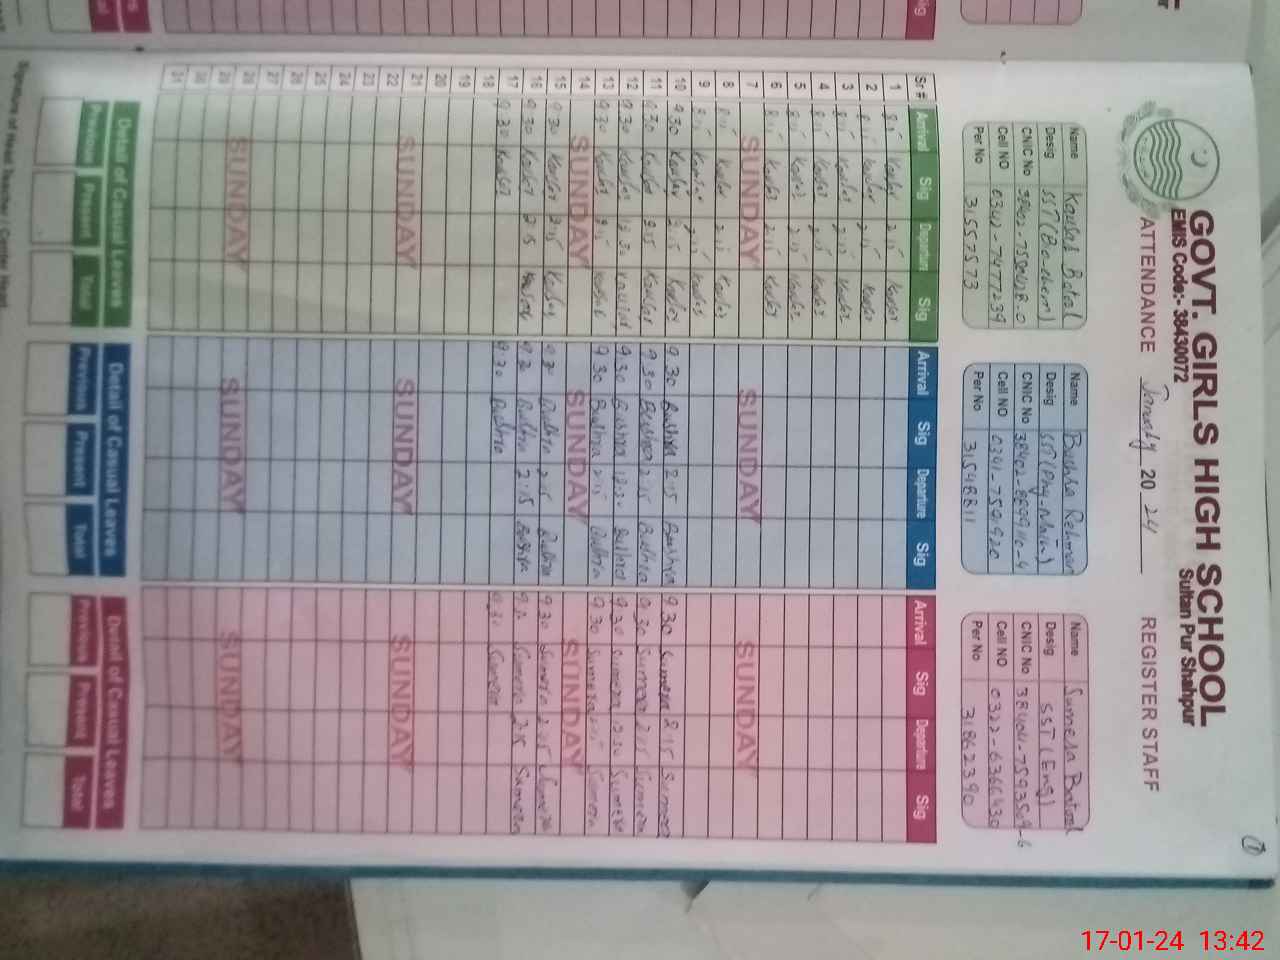 GOVT. GIRLS HIGH SCHOOL
EMIS Code:- 38430072 Sultan Pur Shahpur
ATTENDANCE January 20 24 REGISTER STAFF
Name Kausar Batool
Desig SST
CNIC No
Cell NO 0342-7477239
Per No 31557573
Name Bushra Rehman
Desig SST (Phy-Math)
CNIC No
Cell NO
Per No 31548811
Name Sumera Batool
Desig SST (Eng)
CNIC No
Cell NO 0322-6366430
Per No 31862390
Sr # Arrival Sig Departure Sig Arrival Sig Departure Sig Arrival Sig Departure Sig
1 Kausar 2:15 Kausar
2 Kausar 2:15 Kausar
3 Kausar 2:15 Kausar
4 Kausar 2:15 Kausar
5 Kausar 2:15 Kausar
6 Kausar 2:15 Kausar
7 SUNDAY SUNDAY SUNDAY
8 Kausar 2:15 Kausar
9 Kausar 2:15 Kausar
10 9:30 Kausar 2:15 Kausar 9:30 Bushra 2:15 Bushra 9:30 Sumera 2:15 Sumera
11 9:30 Kausar 2:15 Kausar 9:30 Bushra 2:15 Bushra 9:30 Sumera 2:15 Sumera
12 9:30 Kausar 12:30 Kausar 9:30 Bushra 12:30 Bushra 9:30 Sumera 12:30 Sumera
13 9:30 Kausar 2:15 Kausar 9:30 Bushra 2:15 Bushra 9:30 Sumera 2:15 Sumera
14 SUNDAY SUNDAY SUNDAY
15 9:30 Kausar 2:15 Kausar 9:30 Bushra 2:15 Bushra 9:30 Sumera 2:15 Sumera
16 9:30 Kausar 2:15 Kausar 9:30 Bushra 2:15 Bushra Sumera 2:15 Sumera
17 9:30 Kausar 9:30 Bushra 9:30 Sumera
18
19
20
21 SUNDAY SUNDAY SUNDAY
22
23
24
25
26
27
28 SUNDAY SUNDAY SUNDAY
29
30
31
Detail of Casual Leaves Detail of Casual Leaves Detail of Casual Leaves
Previous Present Total Previous Present Total Previous Present Total
Signature of Head Teacher / Center Head
17-01-24 13:42